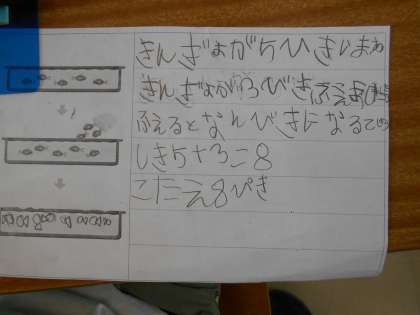 きんぎょが5ひきいます
きんぎょが3びきふえます
ふえるとなんびきになるでしょう
しき5+3=8
こたえ8ぴき